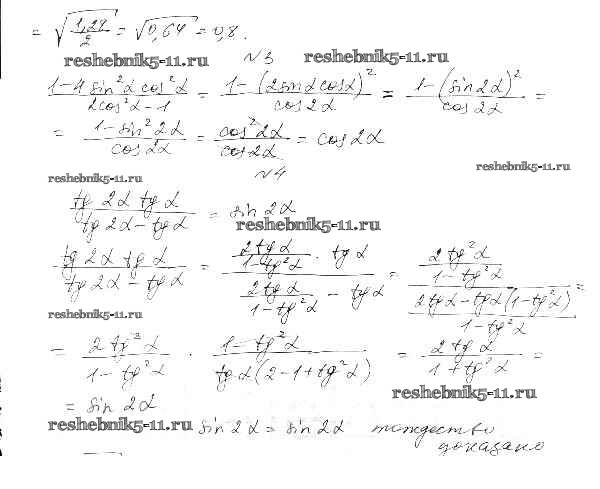 = √(1,28/2) = √0,64 = 0,8.
reshebnik5-11.ru
№3 reshebnik5-11.ru
(1-4sin²α cos²α)/(2cos²α-1) = (1-(2sinα cosα)²)/(cos2α) = (1-(sin2α)²)/(cos2α) =
= (1-sin²2α)/(cos2α) = (cos²2α)/(cos2α) = cos2α
reshebnik5-11.ru
№4
reshebnik5-11.ru
(tg2α tgα)/(tg2α-tgα) = sin2α
reshebnik5-11.ru
(tg2α tgα)/(tg2α-tgα) = ((2tgα)/(1-tg²α) · tgα)/((2tgα)/(1-tg²α) - tgα) = ((2tg²α)/(1-tg²α))/((2tgα-tgα(1-tg²α))/(1-tg²α)) =
reshebnik5-11.ru
= (2tg²α)/(1-tg²α) · (1-tg²α)/(tgα(2-1+tg²α)) = (2tgα)/(1+tg²α) =
reshebnik5-11.ru
= sin2α
reshebnik5-11.ru sin2α = sin2α тождество
доказано